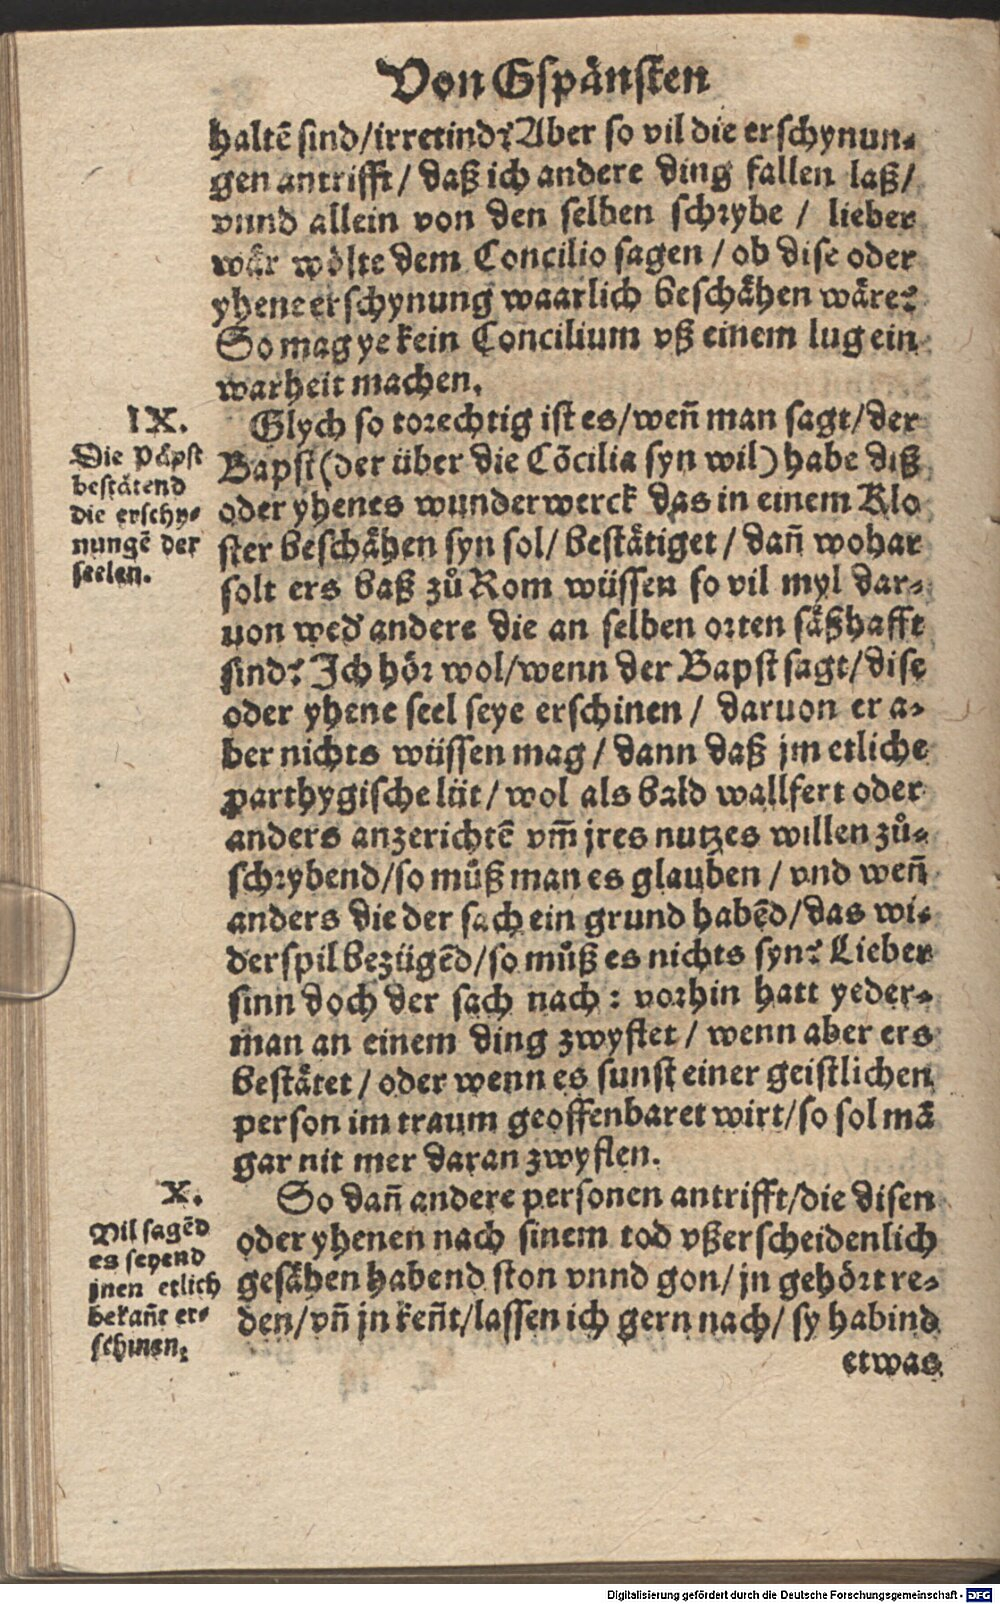 Von Gspånsten
haltē sind/irretind? Aber so vil die erschynun-
gen antrifft / daß ich andere ding fallen laß/
vnnd allein von den selben schrybe / lieber
wår wölte dem Concilio sagen / ob dise oder
yhene erschynung waarlich beschåhen wåre?
So mag ye kein Concilium vß einem lug ein
warheit machen.
IX.
Die Påpst
beståtend
die erschy-
nungē der
seelen.
Glych so torechtig ist es/weñ man sagt/der
Bapst (der über die Cōcilia syn wil) habe diß
oder yhenes wunderwerck das in einem Klo
ster beschåhen syn sol/ beståtiget / dañ wohar
solt ers baß zů Rom wüssen so vil myl dar-
uon wed' andere die an selben orten såßhafft
sind? Ich hör wol/wenn der Bapst sagt/dise
oder yhene seel seye erschinen / daruon er a-
ber nichts wüssen mag / dann daß jm etliche
parthygische lüt / wol als bald wallfert oder
anders anzerichtē vm̃ jres nutzes willen zů-
schrybend/so můß man es glauben / vnd weñ
anders die der sach ein grund habēd/das wi-
derspil bezügēd/so můß es nichts syn? Lieber
sinn doch der sach nach : vorhin hatt yeder-
man an einem ding zwyflet / wenn aber ers
beståtet / oder wenn es sunst einer geistlichen
person im traum geoffenbaret wirt/so sol mā
gar nit mer daran zwyflen.
X.
Vil sagēd
es seyend
jnen etlich
bekañt er-
schinen.
So dañ andere personen antrifft/die disen
oder yhenen nach sinem tod vßerscheidenlich
gesåhen habend ston vnnd gon/ jn gehört re-
den/vñ jn keñt/lassen ich gern nach/ sy habind
etwas
Digitalisierung gefördert durch die Deutsche Forschungsgemeinschaft - DFG